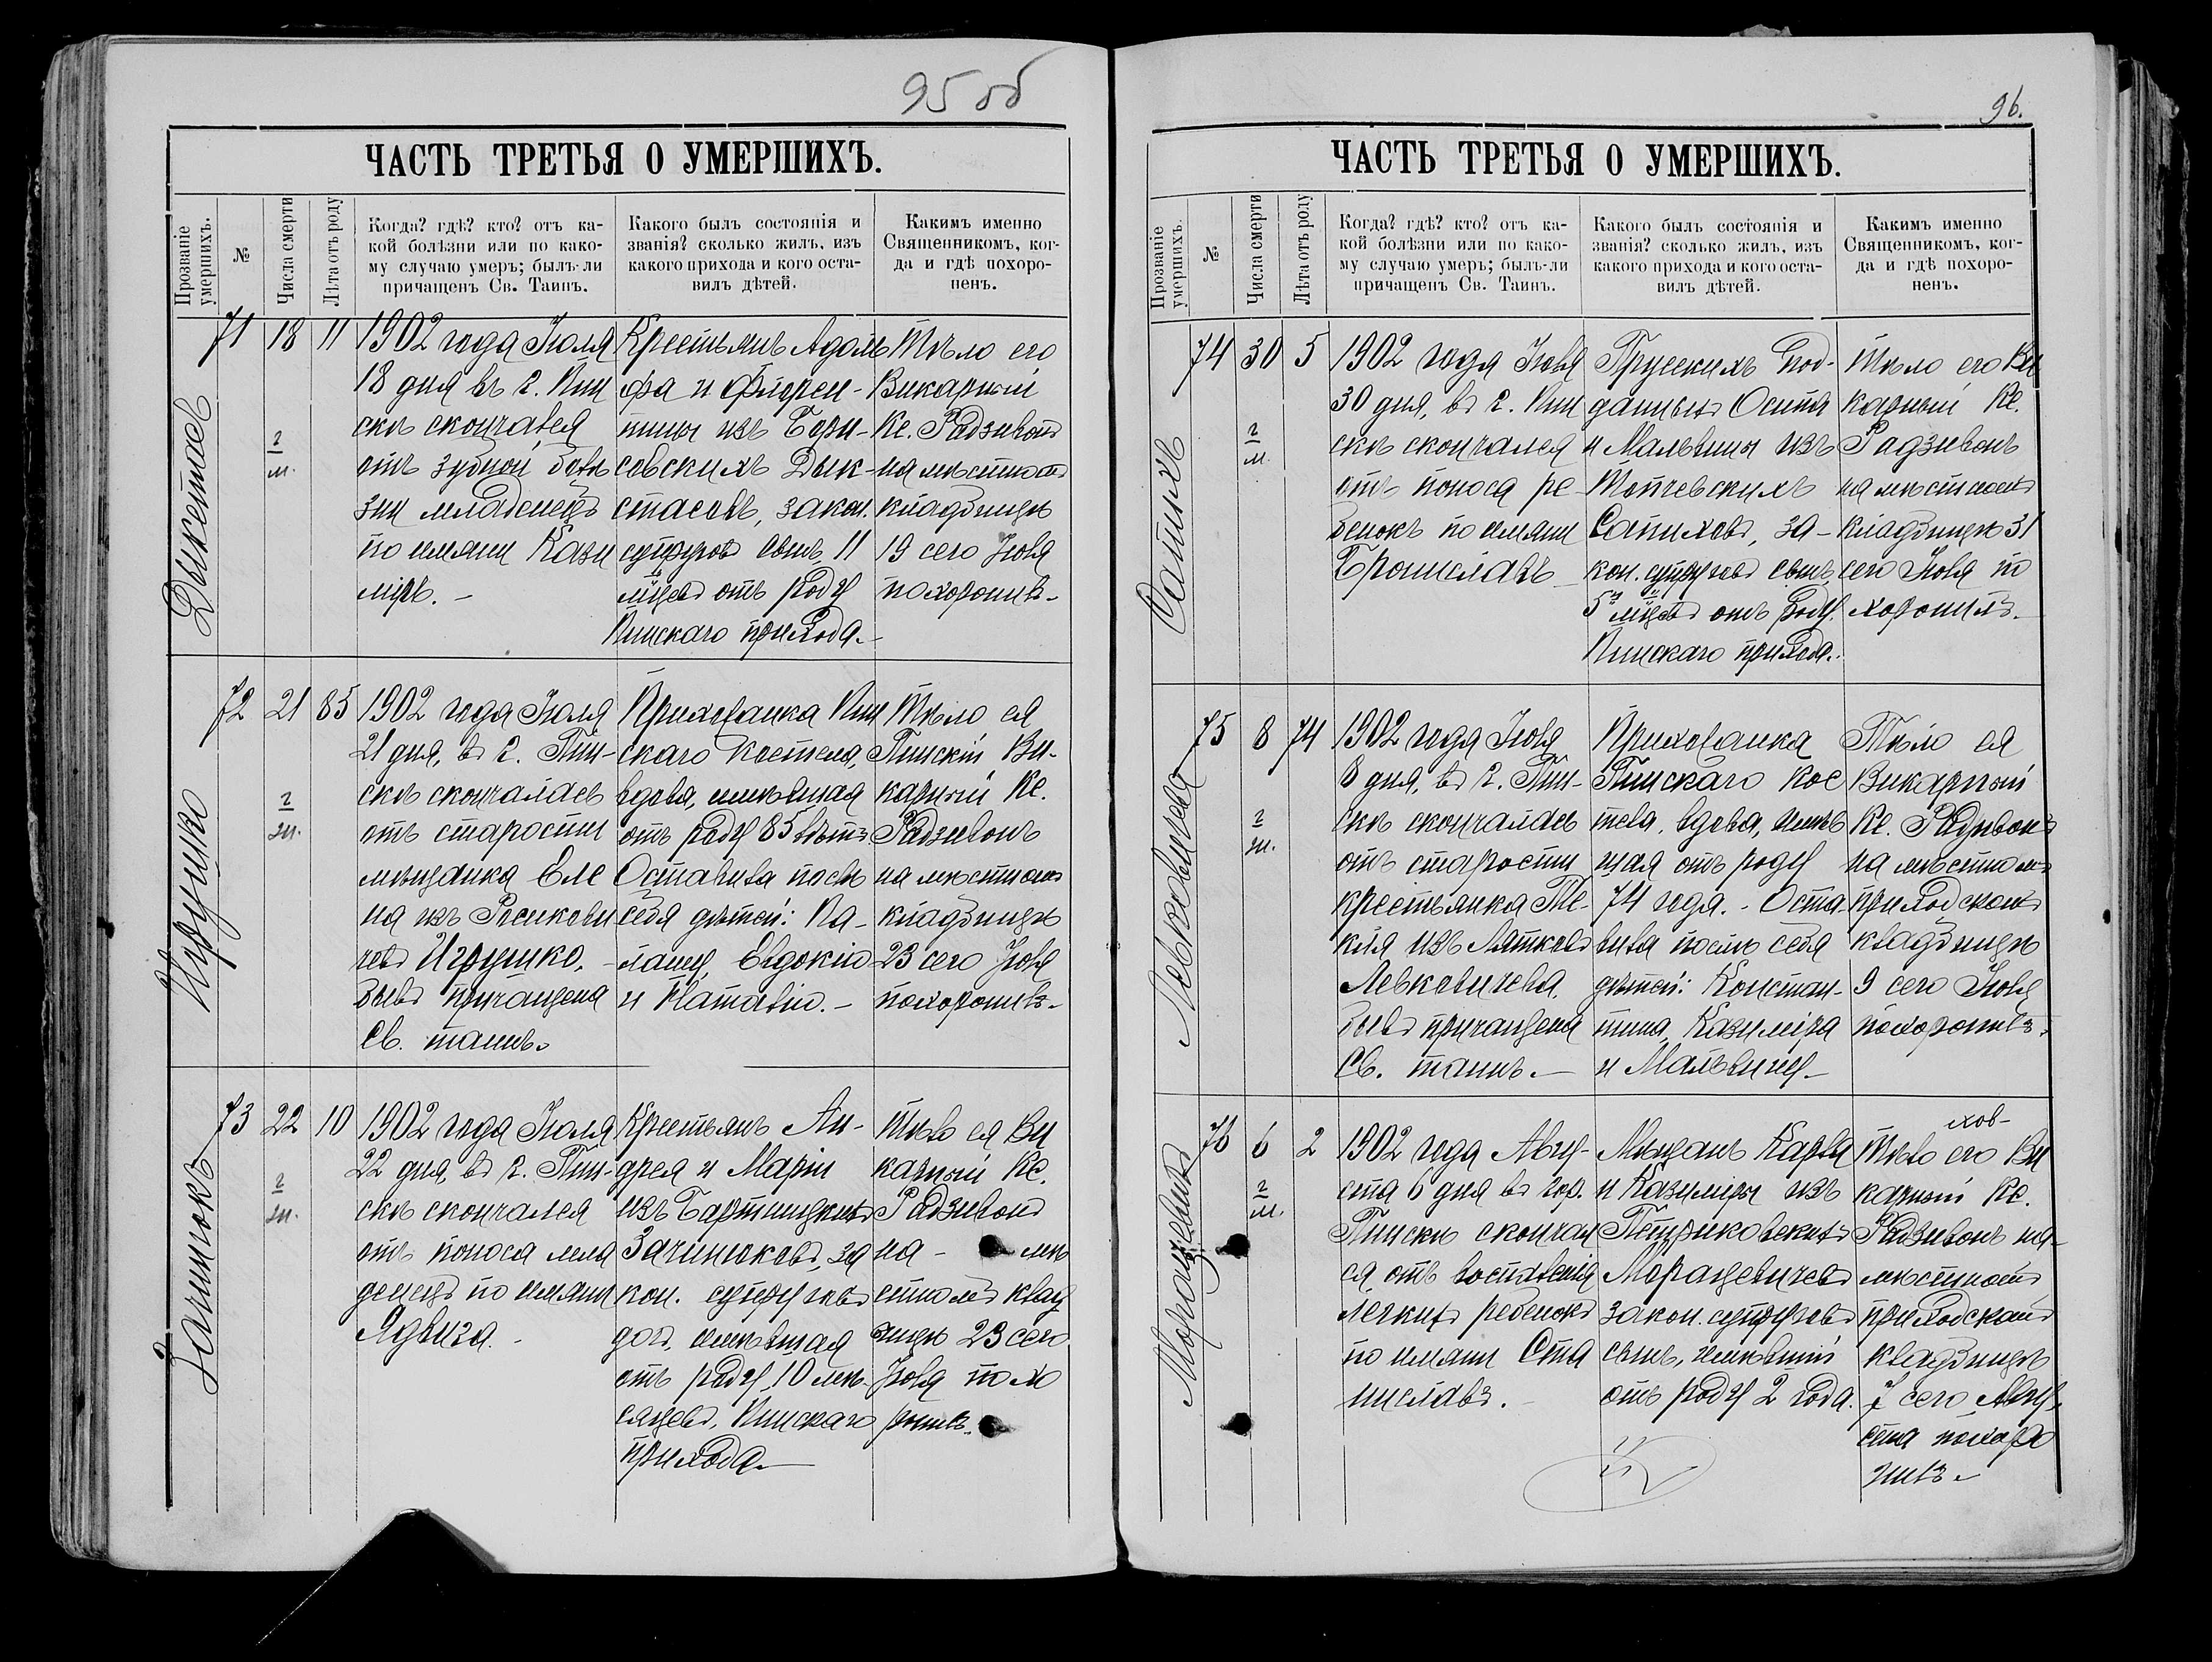 95 об
ЧАСТЬ ТРЕТЬЯ О УМЕРШИХЪ.
Прозваніе умершихъ.
№
Числа смерти
Лѣта отъ роду
Когда? гдѣ? кто? отъ ка-
кой болѣзни или по како-
му случаю умеръ; былъ-ли
причащенъ Св. Таинъ.
Какого былъ состоянія и
званія? сколько жилъ, изъ
какого прихода и кого оста-
вилъ дѣтей.
Какимъ именно
Священникомъ, ког-
да и гдѣ похоро-
ненъ.
71
18
11
г
м.
1902 года Іюля
18 дня въ г. Пин
скѣ скончался
отъ зубной болѣ
зни младенецъ
по имяни Кази
міръ. -
Крестьянъ Адоль
фа и Флорен-
тины изъ Бори-
совскихъ Дык-
стасовъ, закон.
супруговъ сынъ, 11
мцевъ отъ роду
Пинскаго прихода.-
Тѣло его
Викарный
Кс. Радзивонъ
на мѣстномъ
кладбищѣ
19 сего Іюля
похоронилъ-
72
21
85
Игрушко
г
ж.
1902 года Іюля
21 дня, въ г. Пин-
скѣ скончалась
отъ старости
мѣщанка Еле
на изъ
Игрушко,-
бывъ причащена
Св. таинъ.
Прихожанка Пин
скаго костела,
вдова, имѣвшая
отъ роду 85 лѣтъ
Оставила послѣ
себя дѣтей: Па-
лашу, Евдокію
и Наталію.-
Тѣло ея
Пинскій Ви-
карный Кс.
Радзивонъ
на мѣстномъ
кладбищѣ
23 сего Іюля
похоронилъ-
73
22
10
Зачинюкъ
г
ж.
1902 года Іюля
22 дня, въ г. Пин-
скѣ скончался
отъ поноса мла
денецъ по имяни
Ядвига.-
Крестьянъ Ан-
дрея и Маріи
изъ Бартницкихъ
Зачинюковъ, за
кон. супруговъ
дочь, имѣвшая
отъ роду 10 мѣ-
сяцевъ, Пинскаго
прихода-
Тѣло ея Ви
карный Кс.
Радзивонъ
на - мѣ
стномъ клад
бищѣ 23 сего
Іюля похо
ронилъ.
96.
ЧАСТЬ ТРЕТЬЯ О УМЕРШИХЪ.
Прозваніе умершихъ.
№
Числа смерти
Лѣта отъ роду
Когда? гдѣ? кто? отъ ка-
кой болѣзни или по како-
му случаю умеръ; былъ-ли
причащенъ Св. Таинъ.
Какого былъ состоянія и
званія? сколько жилъ, изъ
какого прихода и кого оста-
вилъ дѣтей.
Какимъ именно
Священникомъ, ког-
да и гдѣ похоро-
ненъ.
74
30
5
г
м.
1902 года Іюля
30 дня, въ г. Пин
скѣ скончался
отъ поноса ре-
бенокъ по имяни
Брониславъ
Прусскихъ под-
данныхъ Осипа
и Мальвины изъ
закон. супруговъ сынъ,
5 мцевъ отъ роду.
Пинскаго прихода.
Тѣло его Ви
карный Кс.
Радзивонъ
на мѣстномъ
кладбищѣ 31
сего Іюля по
хоронилъ-
75
8
74
Левковичева
г
ж.
1902 года Іюля
8 дня, въ г. Пин-
скѣ скончалась
отъ старости
крестьянка Те-
кля изъ Лятковъ
Левковичева,
бывъ причащена
Св. таинъ.-
Прихожанка
Пинскаго кос
тела, вдова, имѣв
шая отъ роду
74 года.- Оста-
вила послѣ себя
дѣтей: Констан-
тина, Казиміра
и Мальвину-
Тѣло ея
Викарный
Кс. Радзивонъ
на мѣстномъ
приходскомъ
кладбищѣ
9 сего Іюля
похоронилъ.
76
6
2
Морацевичъ
г
м.
1902 года Авгу-
ста 6 дня въ гор.
Пинскѣ скончал
ся отъ воспаленія
легкихъ ребенокъ
по имяни Ста
ниславъ.-
Мѣщанъ Карла
и Казиміры изъ
Петриковскихъ
Морацевичевъ
закон. супруговъ
сынъ, имѣвшій
отъ роду 2 года.
Тѣло его Ви
карный Кс.
Радзивонъ на-
мѣстномъ
приходскомъ
кладбищѣ
7 сего Авгу-
ста похоро
нилъ-